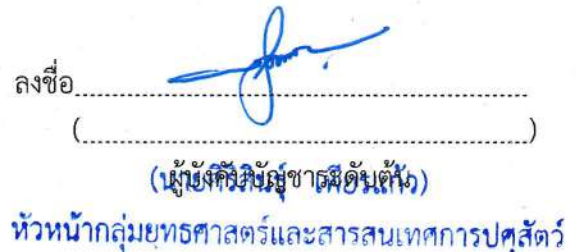 ลงชื่อ..............................................................
(..............................................................)
ผู้บังคับบัญชาระดับต้น
หัวหน้ากลุ่มยุทธศาสตร์และสารสนเทศการปศุสัตว์